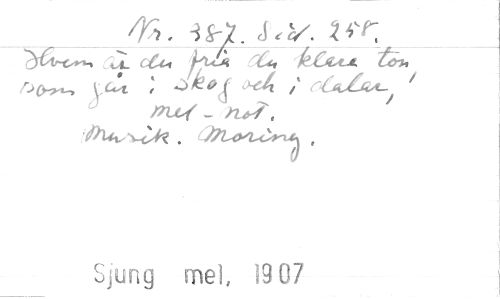 Nr. 387. Sid. 258.
Hvem är du fria du klara ton,
som går i skog och i dalar,
mel-not.
Musik. Moring.
Sjung mel, 1907